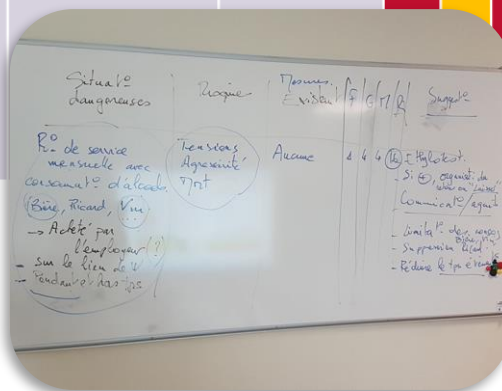 Situat°
dangereuses
Risques
Mesures
Existent
F
G
M
R
Suggest°
R° de service
mensuelle avec
consommat° d'alcools
(Bière, Ricard, Vin)
→ Acheté par
l'employeur (?)
- sur le lieu de W
- Pendant et hors tps
Tensions
Agressivité
Mort
Aucune
4 4
Ethylotest.
- Si ⊕,
Communicat°/agents
- Limitat° des
- Suppression Ricard
- Réduire le tps